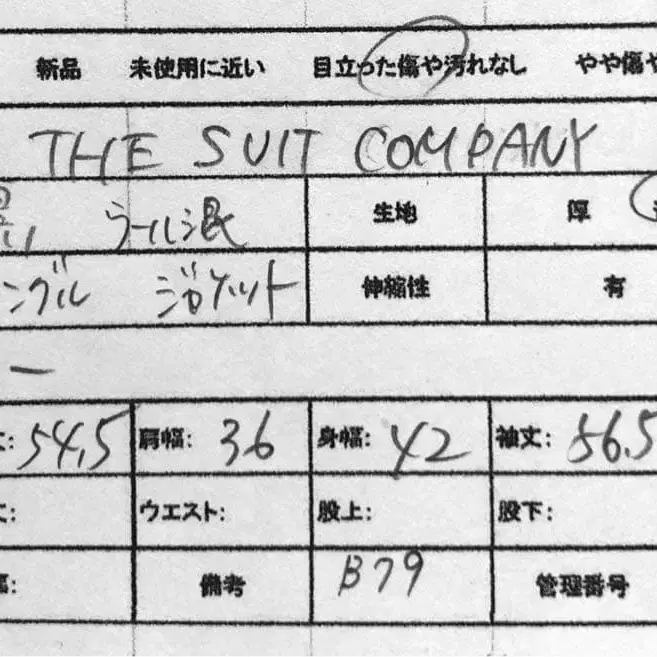 新品 未使用に近い 目立った傷や汚れなし やや傷や
THE SUIT COMPANY
ウール混 生地 厚
ングル ジャケット 伸縮性 有
ー
丈: 54.5 肩幅: 36 身幅: 42 袖丈: 56.5
丈: ウエスト: 股上: 股下:
幅: 備考 B79 管理番号